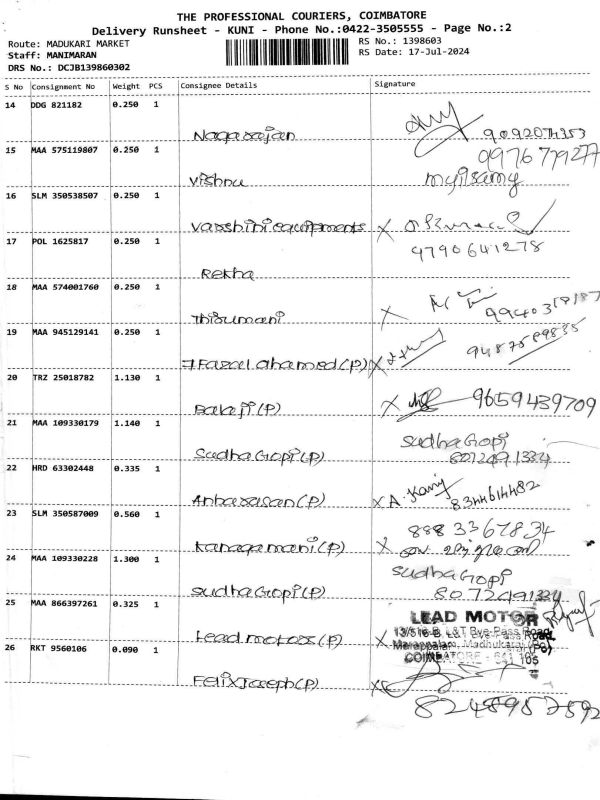 THE PROFESSIONAL COURIERS, COIMBATORE
Delivery Runsheet - KUNI - Phone No.:0422-3505555 - Page No.:2
Route: MADUKARI MARKET RS No.: 1398603
Staff: MANIMARAN RS Date: 17-Jul-2024
DRS No.: DCJB139860302
S No Consignment No Weight PCS Consignee Details Signature
14 DDG 821182 0.250 1
Nagarajan 9092074353
15 MAA 575119807 0.250 1 9976779277
Vishnu myilsamy
16 SLM 350538507 0.250 1
Varshini equipments X
17 POL 1625817 0.250 1 9790641278
Rekha
18 MAA 574001760 0.250 1
Thirumani X
19 MAA 945129141 0.250 1
Fazal ahamed (P) X
20 TRZ 25018782 1.130 1
Balaji (P) X 9659439709
21 MAA 109330179 1.140 1 Sudha Gopi
Sudha Gopi (P)
22 HRD 63302448 0.335 1
Anbarasan (P) X A. 8344614482
23 SLM 350587009 0.560 1 888 3367834
Kanagamani (P) X
24 MAA 109330228 1.300 1 Sudha Gopi
Sudha Gopi (P) 8072491334
25 MAA 866397261 0.325 1 LEAD MOTOR
13/516-B, L&T Bye-Pass Road,
Lead motors (P) X Marappalam, Madhukarai (Po)
26 RKT 9560106 0.090 1 COIMBATORE - 641 105
Felix Joseph (P) X
8248957592